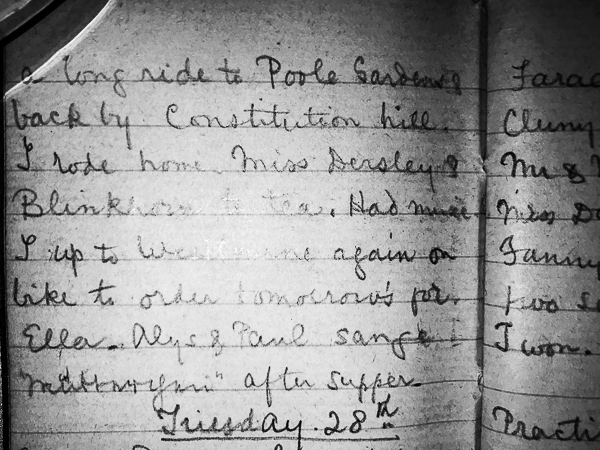 a long ride to Poole Gardens &
back by Constitution hill.
I rode home. Miss Dersley &
Blinkhorn to tea. Had music.
I up to again on
bike to order tomorrow's for
Ella. Alys & Paul sang
after supper.
Tuesday. 28th
Farad
Cluny
Mr &
Miss Do
Fanny
two s
I won.
Practi